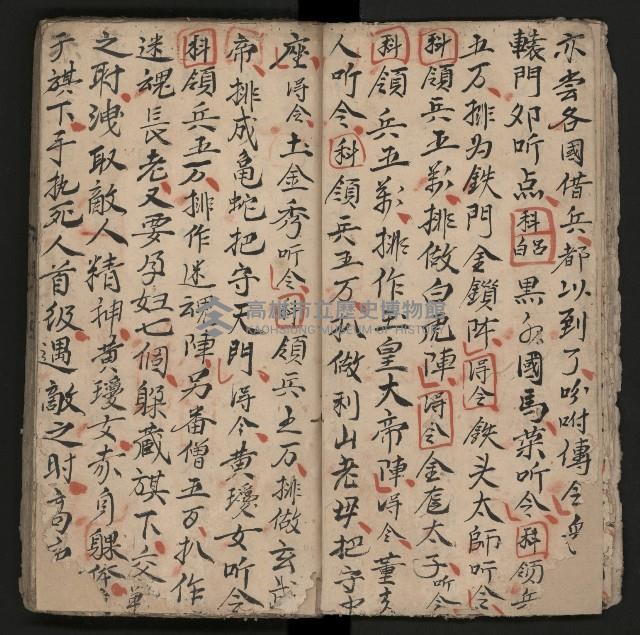 亦尝各國借兵都以到了吩咐傳令
轅門外听点科呂白黑水國馬荣听令科領兵
五万排为鉄門金鎖阵得令鉄头太師听令
科領兵五萬排做白虎陣得令金㐌太子听令
科領兵五萬排作玉皇大帝陣得令董
人听令科領兵五万做利山老母把守中
座得令土金秀听令科領兵五万排做玄武
帝排成亀蛇把守門得令黄瓊女听令
科領兵五万排作迷魂陣另番僧五百扒作
迷魂長老又要孕妇七個躲藏旗下交
之时洩取敵人精神黄瓊女赤身躶体
于旗下手执死人首級遇敵之时
高雄市立歷史博物館
KAOHSIUNG MUSEUM OF HISTORY